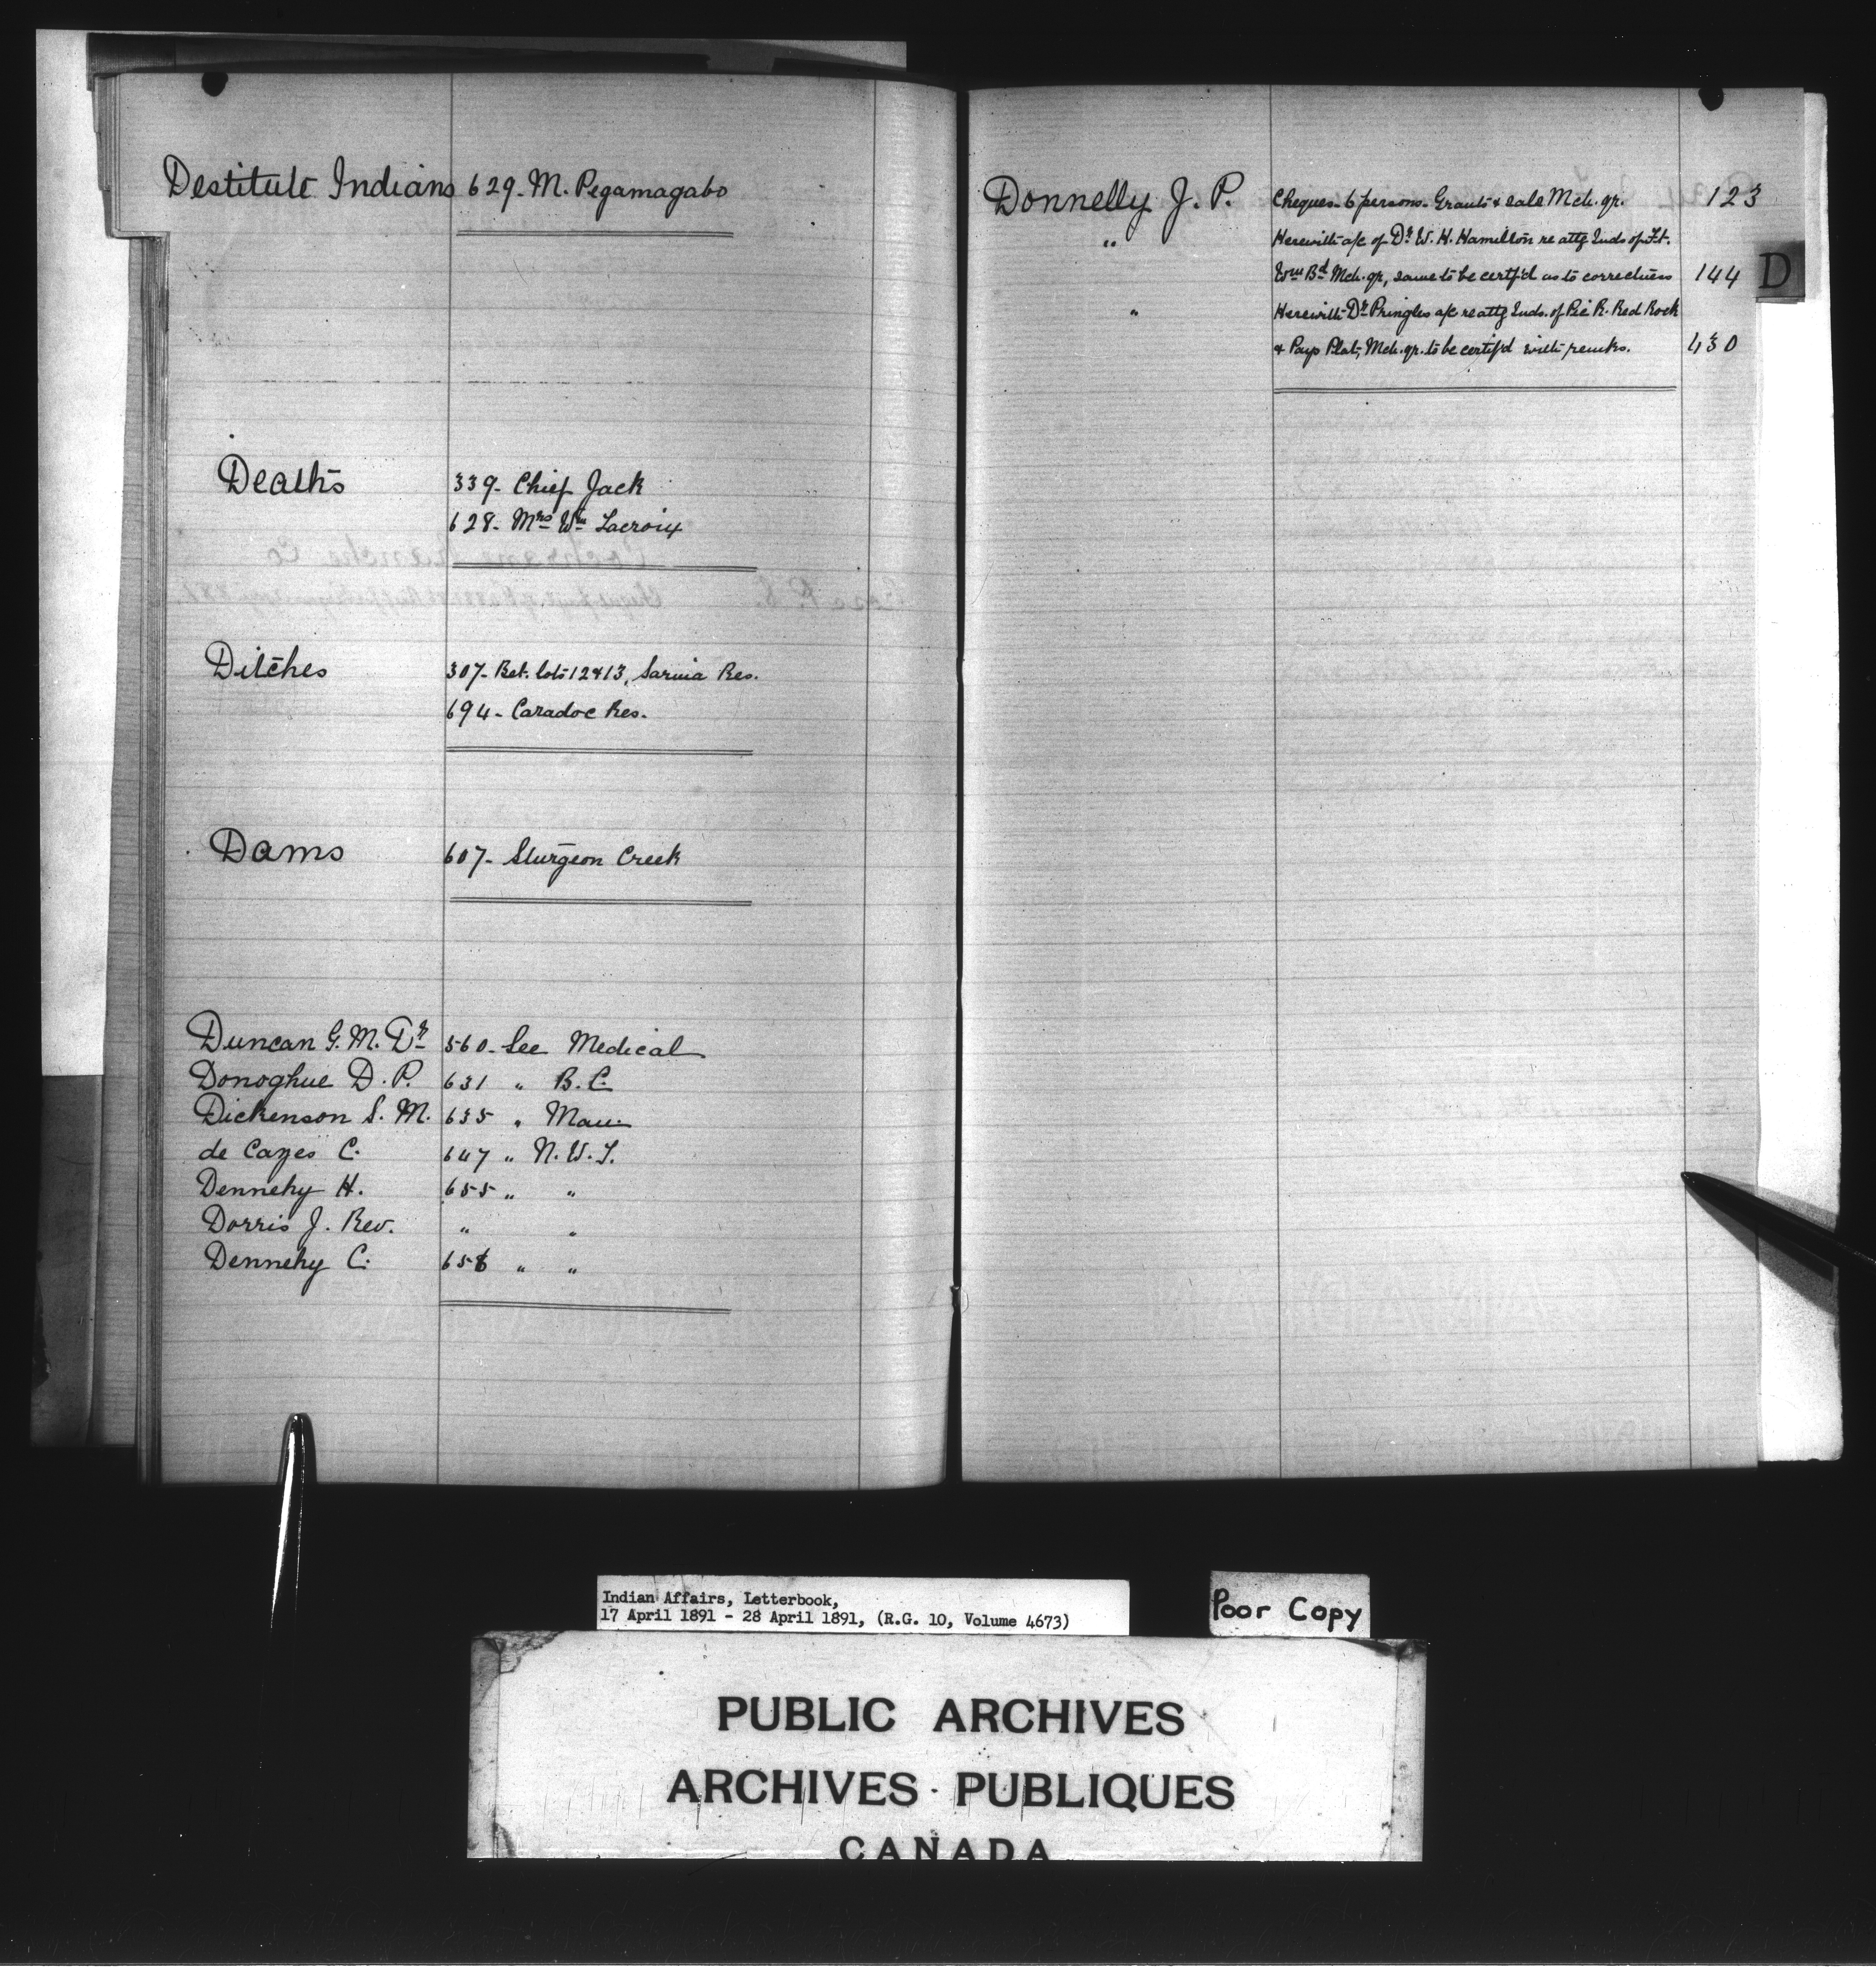 Destitute Indians 629- M. Pegamagabo
Deaths 339- Chief Jack
628- Mrs Wm Lacroix
Ditches 307- Bet. lots 12 & 13, Sarnia Res.
694- Caradoc Res.
Dams 607- Sturgeon Creek
Duncan G. M. Dr 560- See Medical
Donoghue D. P. 631 " B. C.
Dickenson S. M. 635 " Man.
de Cazes C. 647 " N. W. T.
Dennehy H. 655 " "
Dorris J. Rev. " "
Dennehy C. 656 " "
Donnelly J. P. Cheques- 6 persons- Grants & sale Mch. qr. 123
" Herewith a/c of Dr W. H. Hamilton re attg Inds of Ft.
Wm Bd Mch. qr, same to be certf'd as to correctness 144
" Herewith Dr Pringles a/c re attg Inds. of Pic R. Red Rock
& Pays Plat, Mch. qr. to be certif'd with remks. 430
D
Indian Affairs, Letterbook,
17 April 1891 - 28 April 1891, (R.G. 10, Volume 4673)
Poor Copy
PUBLIC ARCHIVES
ARCHIVES PUBLIQUES
CANADA